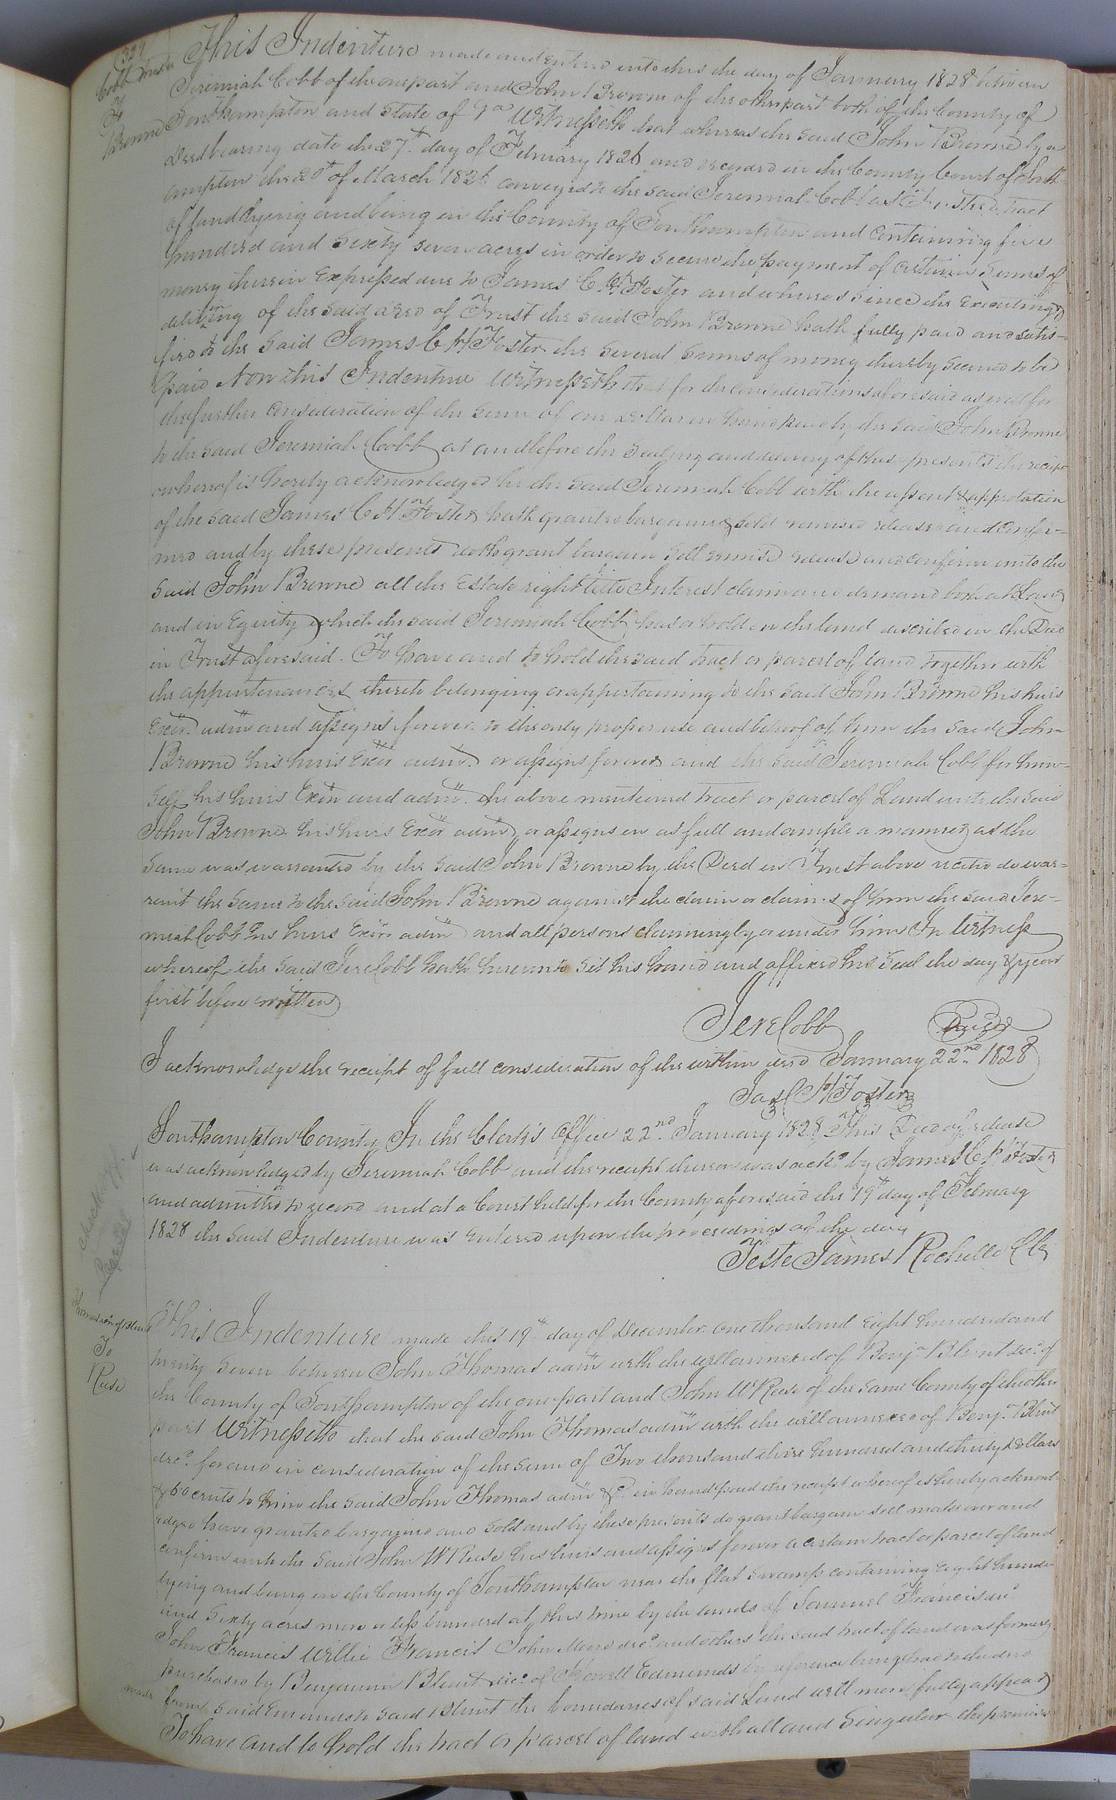 327
Cobb Trustee
To
Browne
This Indenture made and entered into this the day of January 1828 between
Jeremiah Cobb of the one part and John Browne of the other part both of the County of
Southampton and State of Va Witnesseth that whereas the said John Browne by a
Deed bearing date the 27th day of February 1826 and recorded in the County Court of South-
ampton the 20th of March 1826 conveyed to the said Jeremiah Cobb as Trustee a tract
of land lying and being in the County of Southampton and containing five
hundred and Sixty seven acres in order to secure the payment of certain Sums of
money therein Expressed due to James C. H. Foster and whereas since the Executing &
delivering of the said deed of Trust the said John Browne hath fully paid and satis-
fied to the Said James C H Foster the several Sums of money thereby secured to be
paid Now this Indenture Witnesseth that for the considerations aforesaid as well for
the further Consideration of the sum of one dollar in hand paid by the said John Browne
to the said Jeremiah Cobb at and before the Sealing and delivery of these presents the receipt
whereof is hereby acknowledged he the said Jeremiah Cobb with the assent & approbation
of the said James C H Foster hath granted bargained sold remised released and confir-
med and by these presents doth grant bargain sell remise release and confirm unto the
said John Browne all the Estate right title Interest claim and demand both at Law
and in Equity which the said Jeremiah Cobb has or hold in the land described in the Deed
in Trust aforesaid. To have and to hold the said tract or parcel of land together with
the appurtenances thereto belonging or appertaining to the said John Browne his heirs
Exors. admrs and assigns forever to the only proper use and behoof of him the said John
Browne his heirs Exors admrs. or assigns forever and the said Jeremiah Cobb for him-
self his heirs Exors and admrs. the above mentioned tract or parcel of Land unto the said
John Browne his heirs Exors admrs or assigns in as full and ample a manner as the
same was warranted by the said John Browne by the Deed in Trust above recited do war-
rant the same to the said John Browne against the claim or claims of him the said Jere-
miah Cobb his heirs Exors admrs and all persons claiming by or under him In Witness
whereof the said Jere Cobb hath hereunto Set his hand and affixed his Seal the day & year
first before written
Jere Cobb
I acknowledge the receipt of full consideration of the within deed January 22nd 1828
Jas C H Foster
Southampton County In the Clerk's Office 22nd. January 1828 This Deed of release
was acknowledged by Jeremiah Cobb and the receipt thereon was ackd by James C H Foster
and admitted to record and at a Court held for the County aforesaid the 19th day of February
1828 the said Indenture was Entered upon the proceedings of the day
Teste James Rochelle Clk
To
Reese
This Indenture made this 19th day of December one thousand eight hundred and
twenty Seven between John Thomas admr with the will annexed of Benjn Blunt decd of
the County of Southampton of the one part and John W Reese of the same County of the other
part Witnesseth that the said John Thomas admr with the will annexed of Benjn. Blunt
decd. for and in consideration of the sum of Two thousand three hundred and thirty dollars
& 50 cents to him the said John Thomas admr &c. in hand paid the receipt whereof is hereby acknowl-
edged have granted bargained and sold and by these presents do grant bargain sell make over and
confirm unto the said John W Reese his heirs and assigns forever a certain tract or parcel of land
lying and being in the County of Southampton near the flat Swamp containing eight hundred
and Sixty acres more or less bounded at this time by the lands of Samuel Francis decd
John Francis Willie Francis John Moore decd and others the said tract of land was formerly
purchased by Benjamin Blunt decd. of Howell Edmunds by reference being had to the deed
from said Edmunds to said Blunt the boundaries of said Land will more fully appear
To have and to hold the tract or parcel of land with all and Singular the premises